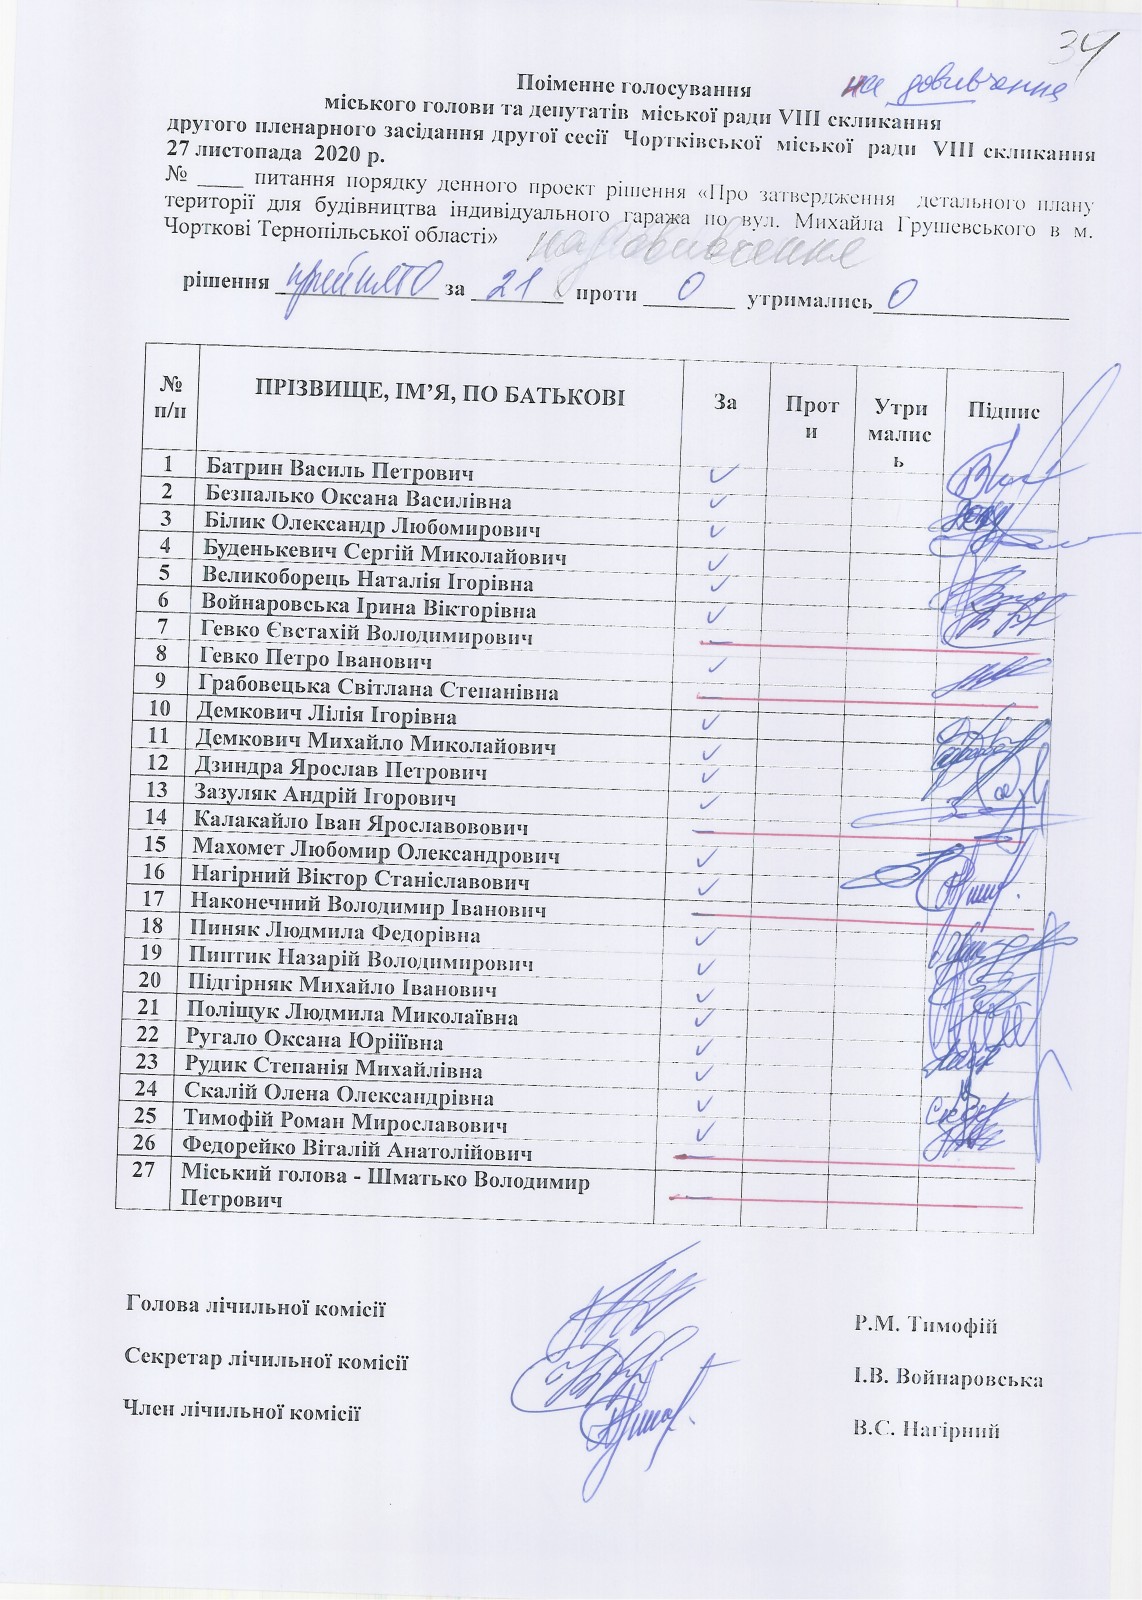 34
Поіменне голосування на довивчення
міського голови та депутатів міської ради VIII скликання
другого пленарного засідання другої сесії Чортківської міської ради VIII скликання
27 листопада 2020 р.
№ ____ питання порядку денного проект рішення «Про затвердження детального плану
території для будівництва індивідуального гаража по вул. Михайла Грушевського в м.
Чорткові Тернопільської області» на довивчення
рішення прийнято за 21 проти 0 утримались 0
№ п/п ПРІЗВИЩЕ, ІМ’Я, ПО БАТЬКОВІ За Проти Утрималиcь Підпис
1 Батрин Василь Петрович ✓
2 Безпалько Оксана Василівна ✓
3 Білик Олександр Любомирович ✓
4 Буденькевич Сергій Миколайович ✓
5 Великоборець Наталія Ігорівна ✓
6 Войнаровська Ірина Вікторівна ✓
7 Гевко Євстахій Володимирович
8 Гевко Петро Іванович ✓
9 Грабовецька Світлана Степанівна
10 Демкович Лілія Ігорівна ✓
11 Демкович Михайло Миколайович ✓
12 Дзиндра Ярослав Петрович ✓
13 Зазуляк Андрій Ігорович ✓
14 Калакайло Іван Ярославовович
15 Махомет Любомир Олександрович ✓
16 Нагірний Віктор Станіславович ✓
17 Наконечний Володимир Іванович
18 Пиняк Людмила Федорівна ✓
19 Пиптик Назарій Володимирович ✓
20 Підгірняк Михайло Іванович ✓
21 Поліщук Людмила Миколаївна ✓
22 Ругало Оксана Юріїївна ✓
23 Рудик Степанія Михайлівна ✓
24 Скалій Олена Олександрівна ✓
25 Тимофій Роман Мирославович ✓
26 Федорейко Віталій Анатолійович
27 Міський голова - Шматько Володимир
Петрович
Голова лічильної комісії Р.М. Тимофій
Секретар лічильної комісії І.В. Войнаровська
Член лічильної комісії В.С. Нагірний